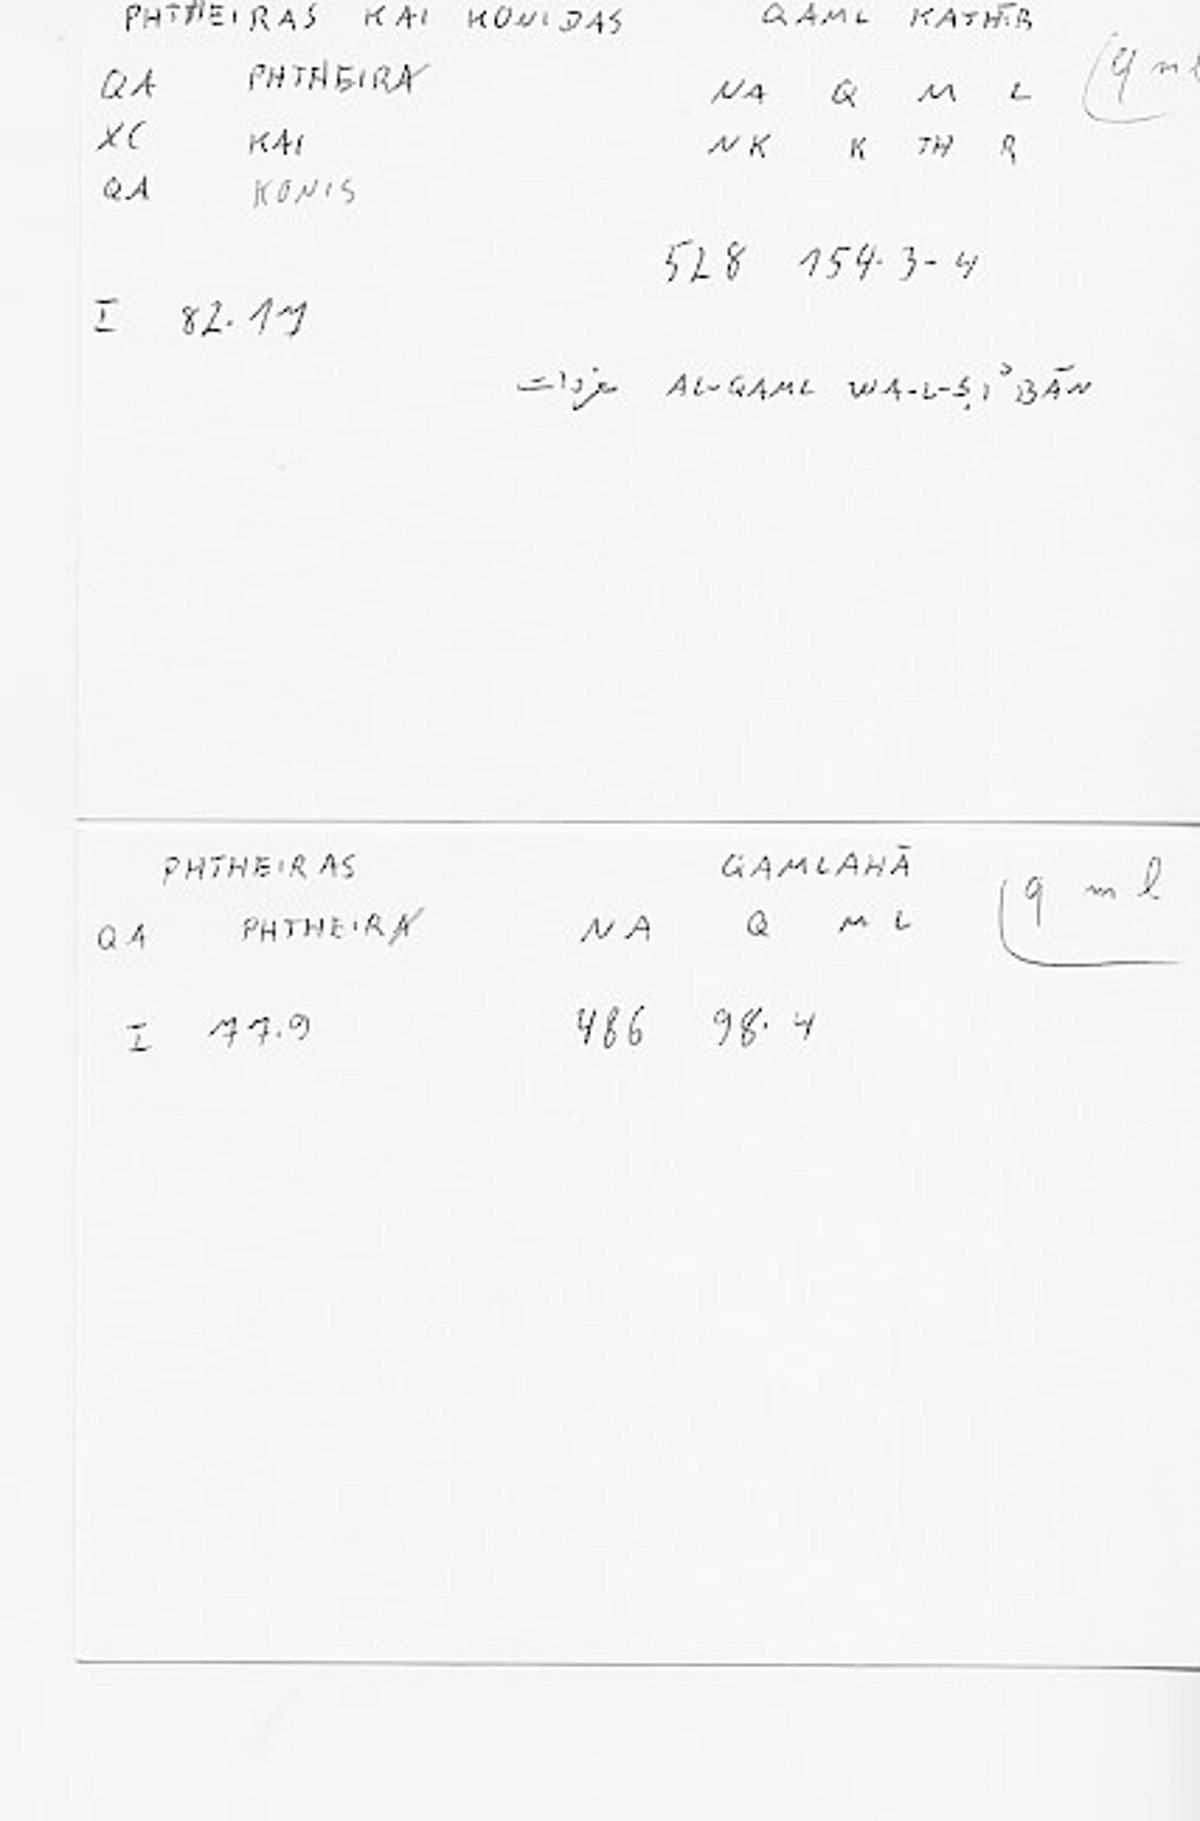 PHTHEIRAS KAI KONIDAS QAML KATHĪR
QA PHTHEIRA NA Q M L (q m l
XC KAI NK K TH R
QA KONIS
528 154.3-4
I 82.17
AL-QAML WA-L-ṢIʾBĀN
PHTHEIRAS QAMLAHĀ
QA PHTHEIRA NA Q M L (q m l
I 77.9 486 98.4